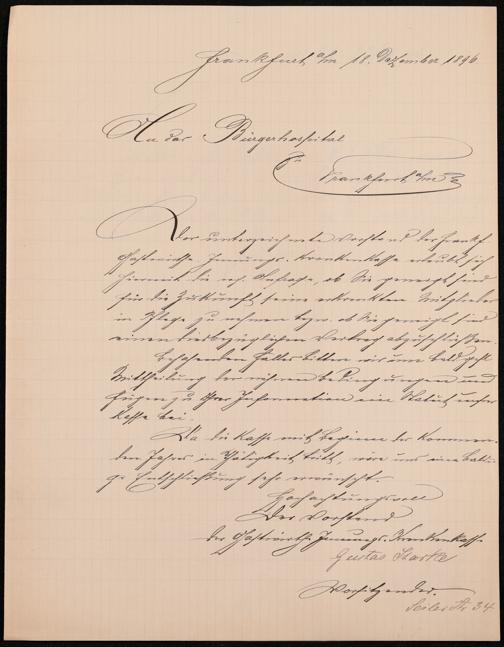 Frankfurt a/m 18. Dezember 1896
An das Bürgerhospital
Frankfurt a/m
Der unterzeichnete Vorstand der Frankf.
Gastwirths-Innungs-Krankenkasse erlaubt sich
hiermit die erg. Anfrage, ob Sie geneigt sind
für die Zukunft seine erkrankten Mitglieder
in Pflege zu nehmen bzw. ob Sie geneigt sind
einen diesbezüglichen Vertrag abzuschließen.
Bejahenden Falles bitten wir um bald gefl.
Mittheilung der näheren Bedingungen und
fügen zu Ihrer Information ein Statut unserer
Kasse bei.
Da die Kasse mit Beginn des kommen-
den Jahres in Thätigkeit tritt, wäre uns eine baldi-
ge Entschließung sehr erwünscht.
Hochachtungsvoll
Der Vorstand
der Gastwirths-Innungs-Krankenkasse
Gustav Starke
Vorsitzender.
Seilerstr 34